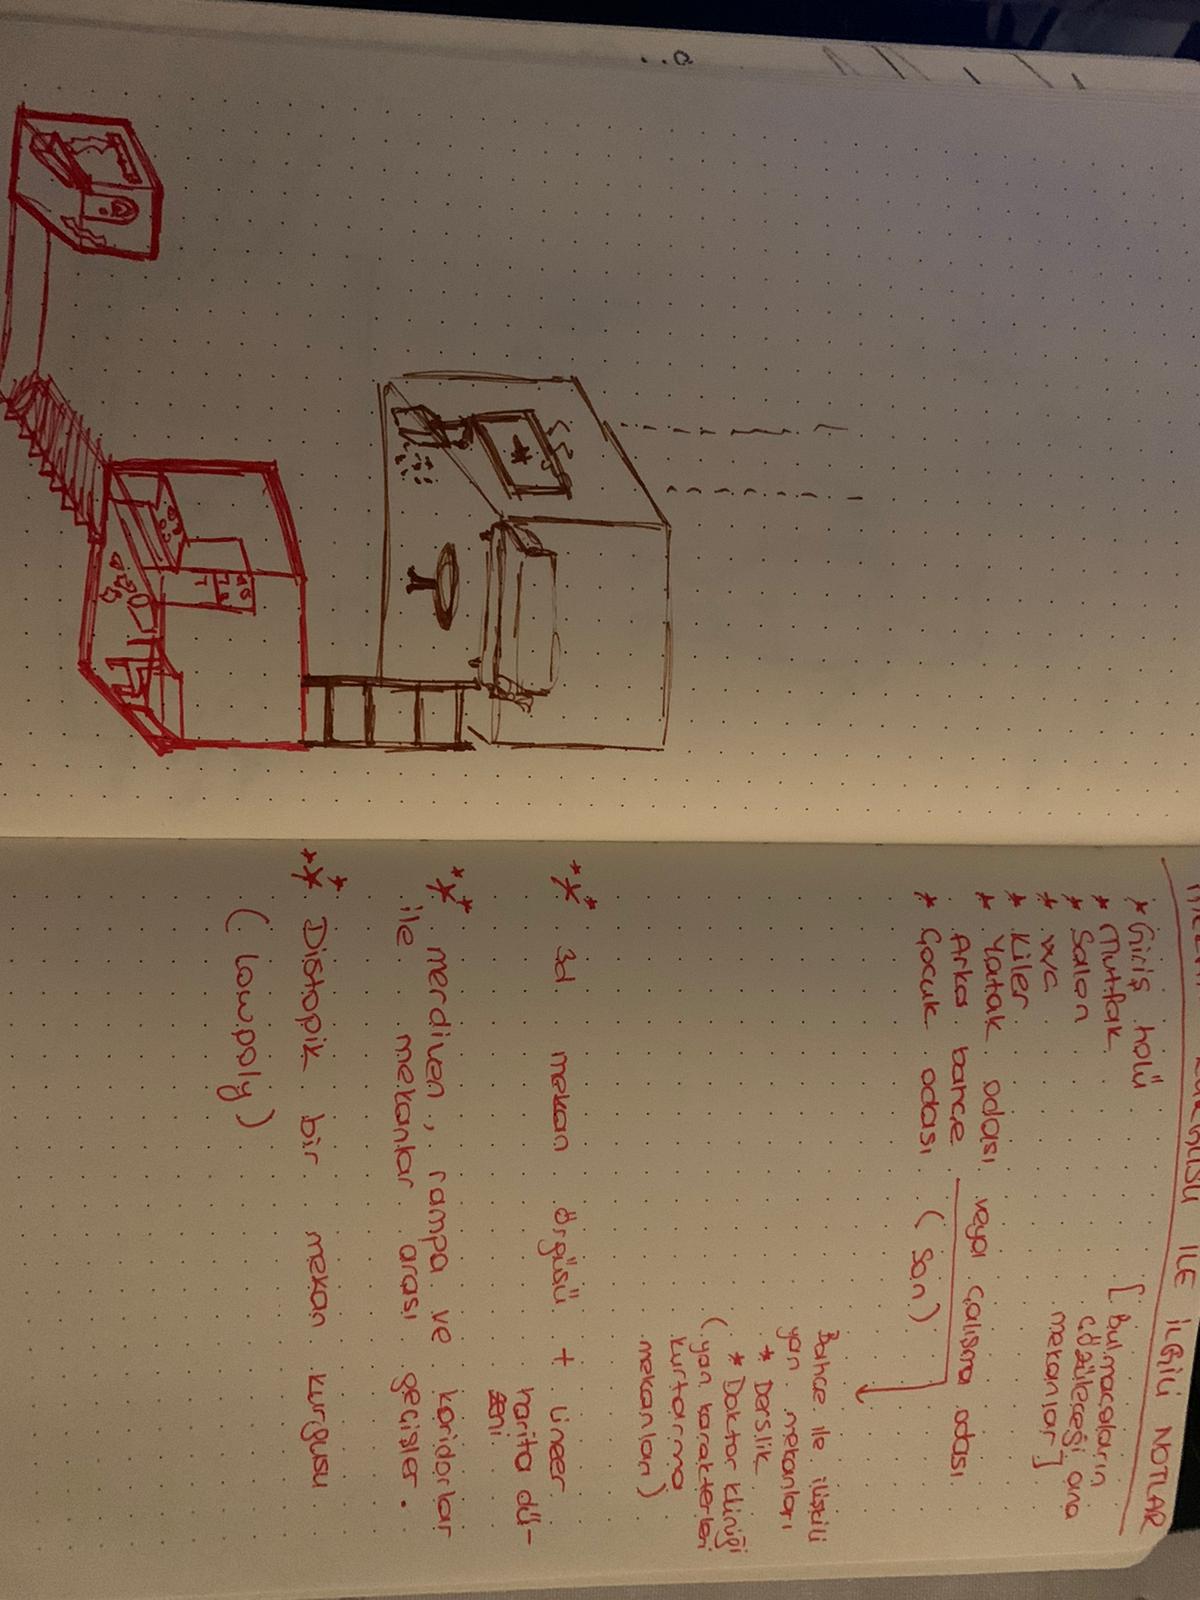 MEKAN KURGUSU İLE İLGİLİ NOTLAR
* Giriş holü
* Mutfak
* Salon
* WC
* Kiler
* Yatak odası veya çalışma odası
Arka bahçe
* Çocuk odası (son)
[Bulmacaların
çözüleceği ana
mekanlar]
Bahçe ile ilişkili
yan mekanları
* Derslik
* Doktor kliniği
(yan karakterleri
kurtarma
mekanları)
* 3d mekan örgüsü + Lineer
harita dü-
zeni.
* merdiven, rampa ve koridorlar
ile mekanlar arası geçişler.
* Distopik bir mekan kurgusu
(Lowpoly)